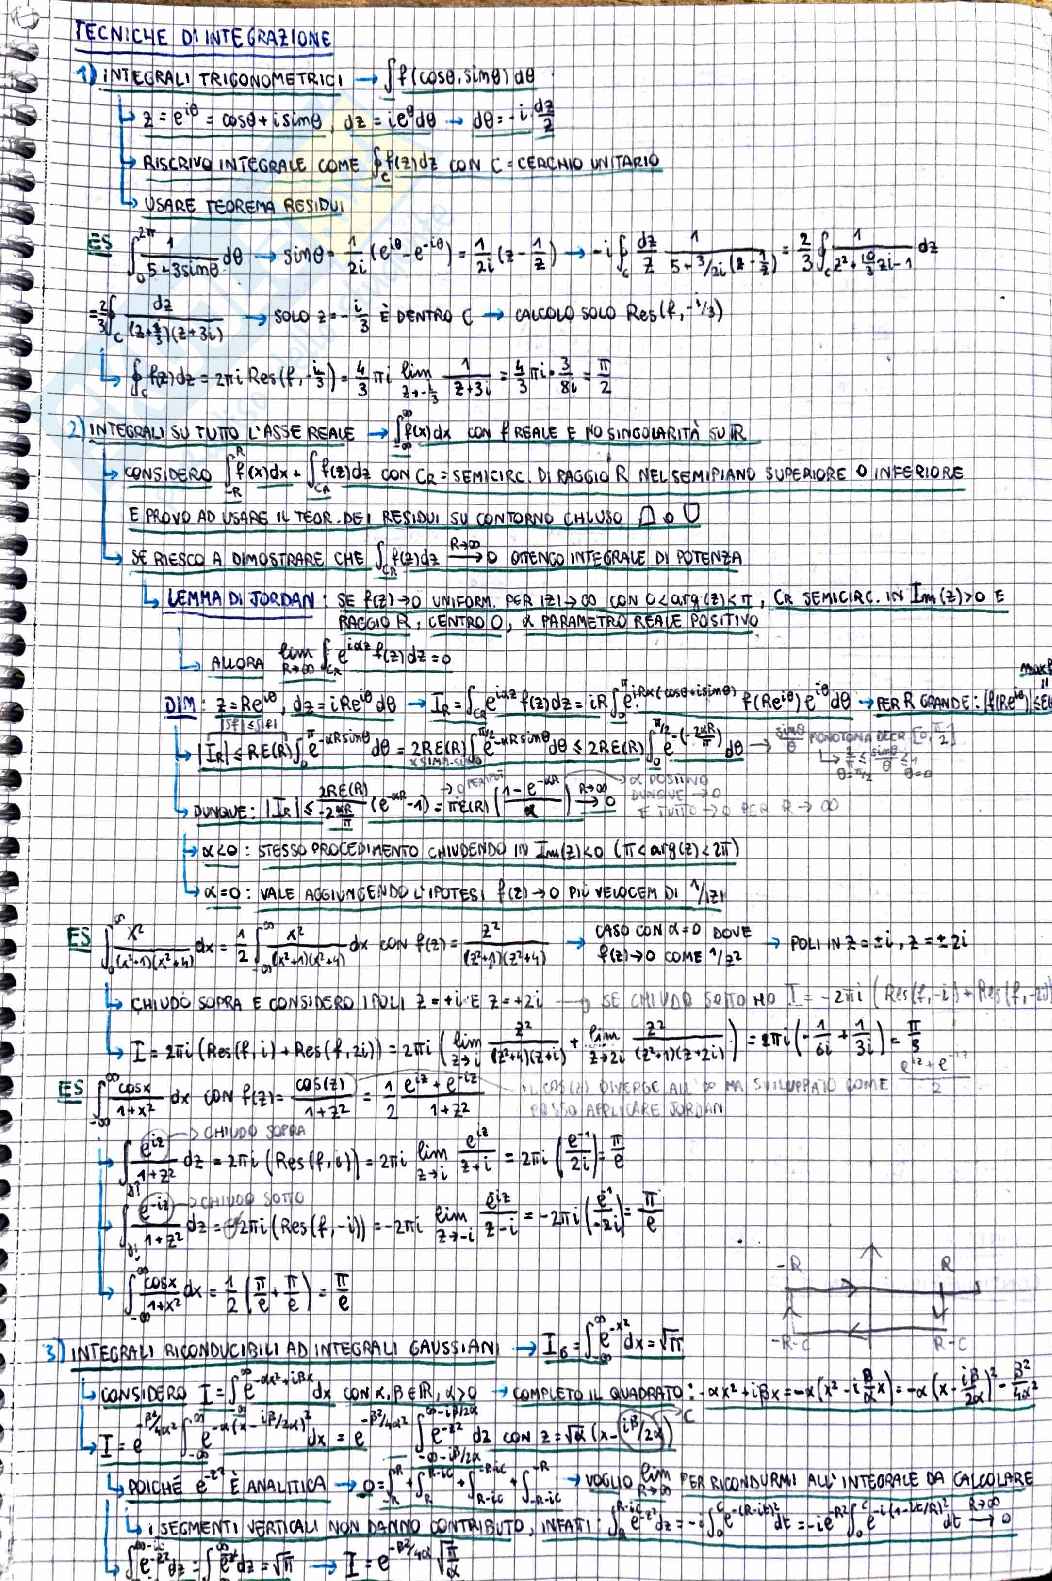 TECNICHE DI INTEGRAZIONE
1) INTEGRALI TRIGONOMETRICI → ∫f(cosθ,sinθ)dθ
z=e^{iθ}=cosθ+isinθ, dz=ie^{θ}dθ → dθ=-i dz/z
RISCRIVO INTEGRALE COME ∮_C f(z)dz CON C=CERCHIO UNITARIO
USARE TEOREMA RESIDUI
ES ∫_0^{2π} 1/(5+3sinθ) dθ → sinθ=1/2i (e^{iθ}-e^{-iθ})=1/2i (z-1/z) → -i∮_C dz/z 1/(5+3/2i(z-1/z)) = 2/3 ∮_C 1/(z²+10/3 zi-1) dz
=2/3 ∮_C dz/((z+i/3)(z+3i)) → SOLO z=-i/3 È DENTRO C → CALCOLO SOLO Res(f,-i/3)
∮_C f(z)dz=2πi Res(f,-i/3)=4/3 πi lim_{z→-i/3} 1/(z+3i)=4/3 πi·3/8i=π/2
2) INTEGRALI SU TUTTO L'ASSE REALE → ∫_{-∞}^{∞} f(x)dx CON f REALE E NO SINGOLARITÀ SU ℝ
CONSIDERO ∫_{-R}^{R} f(x)dx + ∫_{CR} f(z)dz CON CR=SEMICIRC. DI RAGGIO R NEL SEMIPIANO SUPERIORE O INFERIORE
E PROVO AD USARE IL TEOR. DEI RESIDUI SU CONTORNO CHIUSO
SE RIESCO A DIMOSTRARE CHE ∫_{CR} f(z)dz →^{R→∞} 0 OTTENGO INTEGRALE DI POTENZA
LEMMA DI JORDAN: SE f(z)→0 UNIFORM. PER |z|→∞ CON 0<arg(z)<π, CR SEMICIRC. IN Im(z)>0 E
RAGGIO R, CENTRO O, α PARAMETRO REALE POSITIVO
ALLORA lim_{R→∞} ∫_{CR} e^{iαz} f(z)dz=0
DIM: z=Re^{iθ}, dz=iRe^{iθ}dθ → I_R=∫_{CR} e^{iαz} f(z)dz=iR∫_0^π e^{iRα(cosθ+isinθ)} f(Re^{iθ})e^{iθ}dθ → PER R GRANDE: |f(Re^{iθ})|≤ε(
|∫f|≤∫|f|
|I_R|≤Rε(R)∫_0^π e^{-αRsinθ}dθ=2Rε(R)∫_0^{π/2} e^{-αRsinθ}dθ≤2Rε(R)∫_0^{π/2} e^{-(2αR/π)θ}dθ → sinθ/θ MONOTONA DECR [0,π/2]
DUNQUE: |I_R|≤ 2Rε(R)/(-2αR/π) (e^{-αR}-1)=πε(R)((1-e^{-αR})/α) →^{R→∞} 0
α POSITIVO
DUNQUE →0
E TUTTO →0 PER R→∞
α<0: STESSO PROCEDIMENTO CHIUDENDO IN Im(z)<0 (π<arg(z)<2π)
α=0: VALE AGGIUNGENDO L'IPOTESI f(z)→0 PIÙ VELOCEM DI 1/|z|
ES ∫_0^∞ x²/((x²+1)(x²+4)) dx=1/2 ∫_{-∞}^{∞} x²/((x²+1)(x²+4)) dx CON f(z)=z²/((z²+1)(z²+4)) → CASO CON α=0 DOVE f(z)→0 COME 1/z² → POLI IN z=±i, z=±2i
CHIUDO SOPRA E CONSIDERO I POLI z=+i E z=+2i → SE CHIUDO SOTTO HO I=-2πi(Res(f,-i)+Res(f,-2i)
I=2πi(Res(f,i)+Res(f,2i))=2πi(lim_{z→i} z²/((z²+4)(z+i)) + lim_{z→2i} z²/((z²+1)(z+2i)))=2πi(-1/6i+1/3i)=π/3
ES ∫_{-∞}^{∞} cosx/(1+x²) dx CON f(z)=cos(z)/(1+z²)=1/2 (e^{iz}+e^{-iz})/(1+z²) IL COS(z) DIVERGE ALL'∞ MA SVILUPPATO COME (e^{iz}+e^{-iz})/2
POSSO APPLICARE JORDAN
CHIUDO SOPRA
∫ e^{iz}/(1+z²) dz=2πi(Res(f,i))=2πi lim_{z→i} e^{iz}/(z+i)=2πi(e^{-1}/2i)=π/e
CHIUDO SOTTO
∫ e^{-iz}/(1+z²) dz=-2πi(Res(f,-i))=-2πi lim_{z→-i} e^{iz}/(z-i)=-2πi(e^{-1}/-2i)=π/e
∫_{-∞}^{∞} cosx/(1+x²) dx=1/2(π/e+π/e)=π/e
-R R
-R-C R-C
3) INTEGRALI RICONDUCIBILI AD INTEGRALI GAUSSIANI → I_G=∫_{-∞}^{∞} e^{-x²}dx=√π
CONSIDERO I=∫_{-∞}^{∞} e^{-αx²+iβx} dx CON α,β∈ℝ, α>0 → COMPLETO IL QUADRATO: -αx²+iβx=-α(x²-iβ/α x)=-α(x+iβ/2α)²-β²/4α²
I=e^{-β²/4α²}∫_{-∞}^{∞} e^{-α(x-iβ/2α)²}dx=e^{-β²/4α²}∫_{-∞-iβ/2α}^{∞-iβ/2α} e^{-z²}dz CON z=√α(x-iβ/2α) → C
POICHÉ e^{-z²} È ANALITICA → 0=∫_{-R}^{R}+∫_R^{R-iC}+∫_{R-iC}^{-R-iC}+∫_{-R-iC}^{-R} → VOGLIO lim_{R→∞} PER RICONDURMI ALL'INTEGRALE DA CALCOLARE
I SEGMENTI VERTICALI NON DANNO CONTRIBUTO, INFATTI: ∫_R^{R-iC} e^{-z²}dz=-i∫_0^C e^{-(R-it)²}dt=-ie^{-R²}∫_0^C dt →^{R→∞} 0
∫ e^{-z²}dz=∫ e^{-z²}dz=√π → I=e^{-β²/4α}√(π/α)